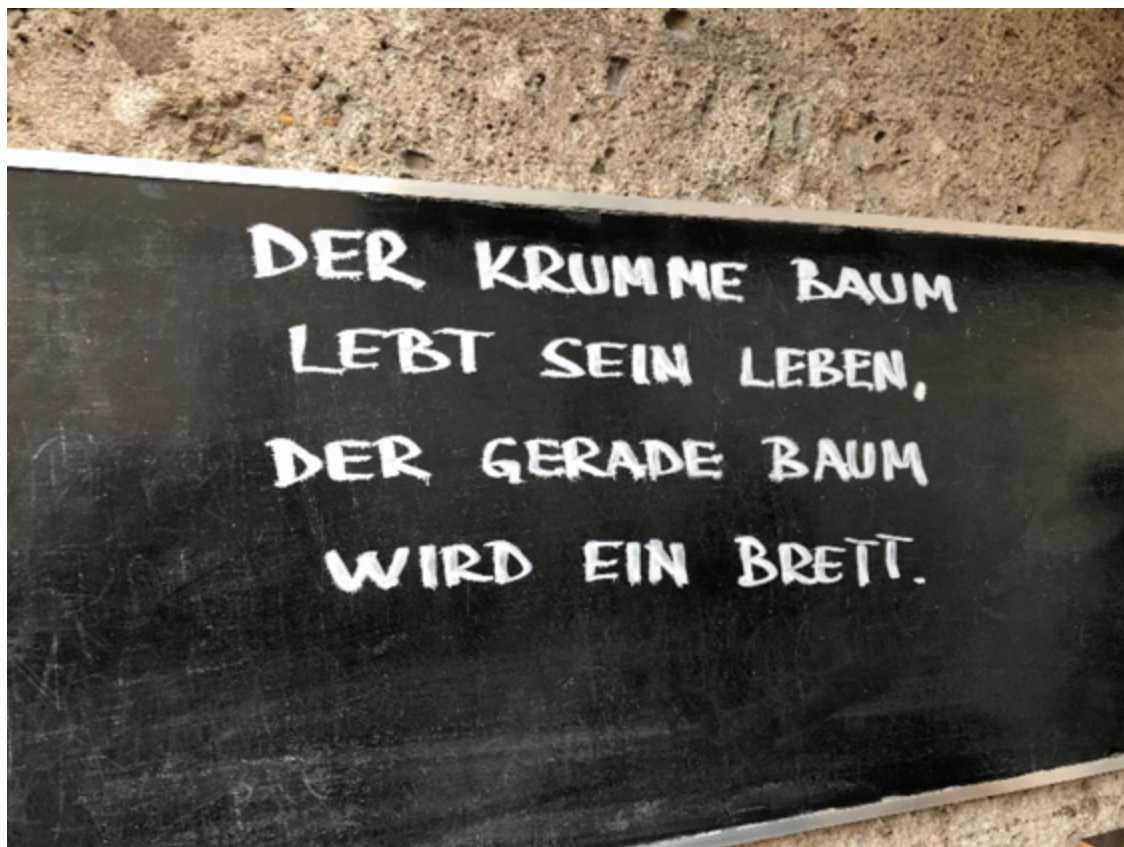 DER KRUMME BAUM
LEBT SEIN LEBEN,
DER GERADE BAUM
WIRD EIN BRETT.